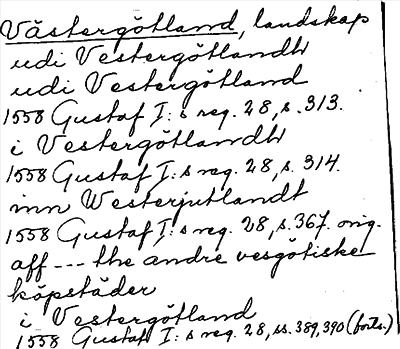 Västergötland, landskap
udi Vestergötlandh
udi Vestergötland
1558 Gustaf I:s reg. 28, s. 313.
i Vestergötlandh
1558 Gustaf I:s reg. 28, s. 314.
inn Westerjutlandt
1558 Gustaf I:s reg. 28, s. 367. orig.
aff --- the andre vesgötiske
köpstäder
i Vestergötland
1558 Gustaf I:s reg. 28, ss. 389, 390 (forts.)